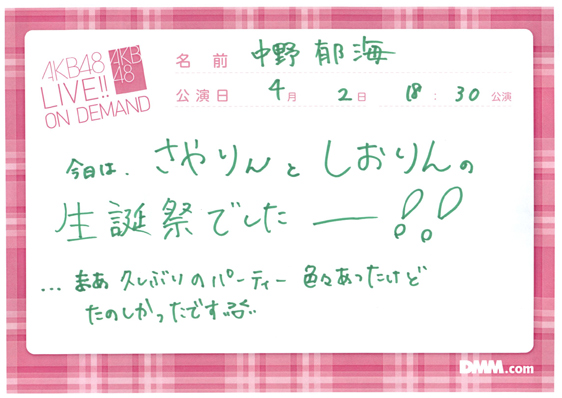 AKB48
LIVE!!
ON DEMAND
AKB
48
名前 中野郁海
公演日 4月 2日 18:30 公演
今日は、さやりんとしおりんの
生誕祭でした――!!
... まあ 久しぶりのパーティー 色々あったけど
たのしかったです
DMM.com